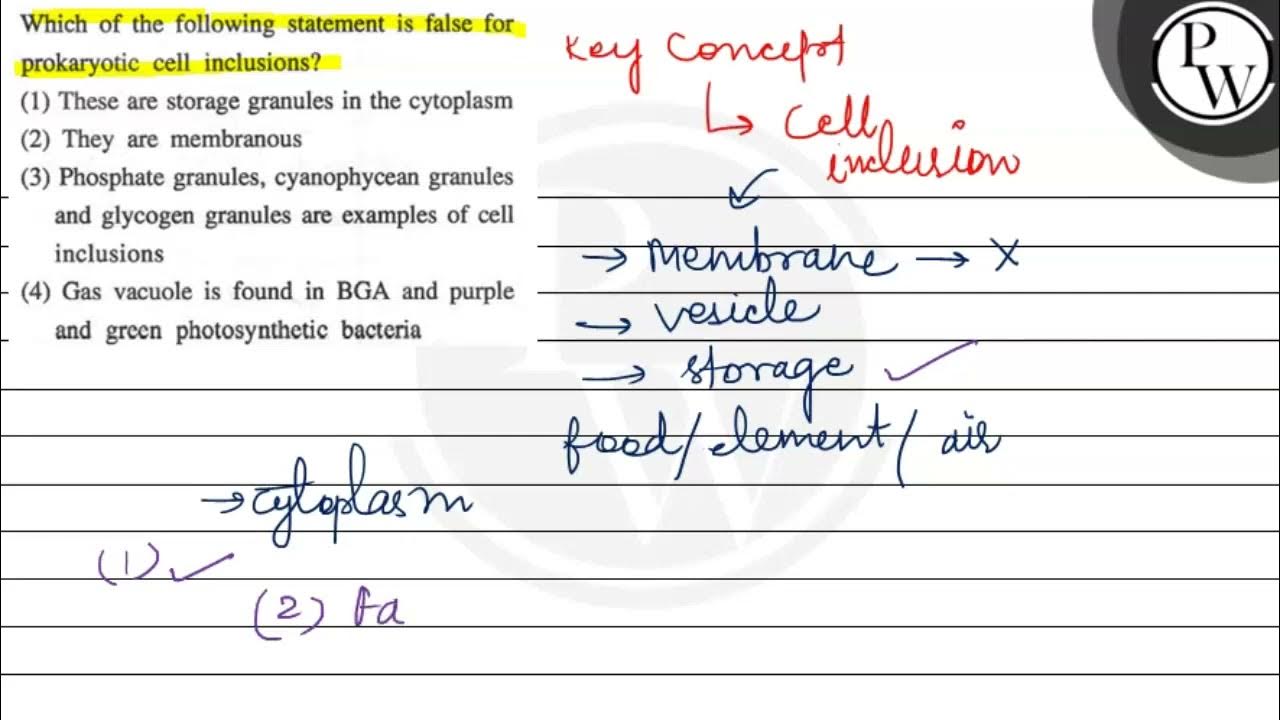 Which of the following statement is false for
prokaryotic cell inclusions?
(1) These are storage granules in the cytoplasm
(2) They are membranous
(3) Phosphate granules, cyanophycean granules
and glycogen granules are examples of cell
inclusions
(4) Gas vacuole is found in BGA and purple
and green photosynthetic bacteria
Key Concept
↳ Cell
inclusion
→ Membrane → X
→ vesicle
→ storage ✓
food/element/air
→ cytoplasm
(1) ✓
(2) fa
PW